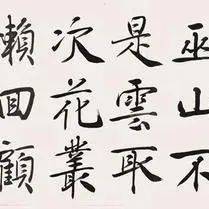 巫山不
是雲取
次花叢
賴回顧